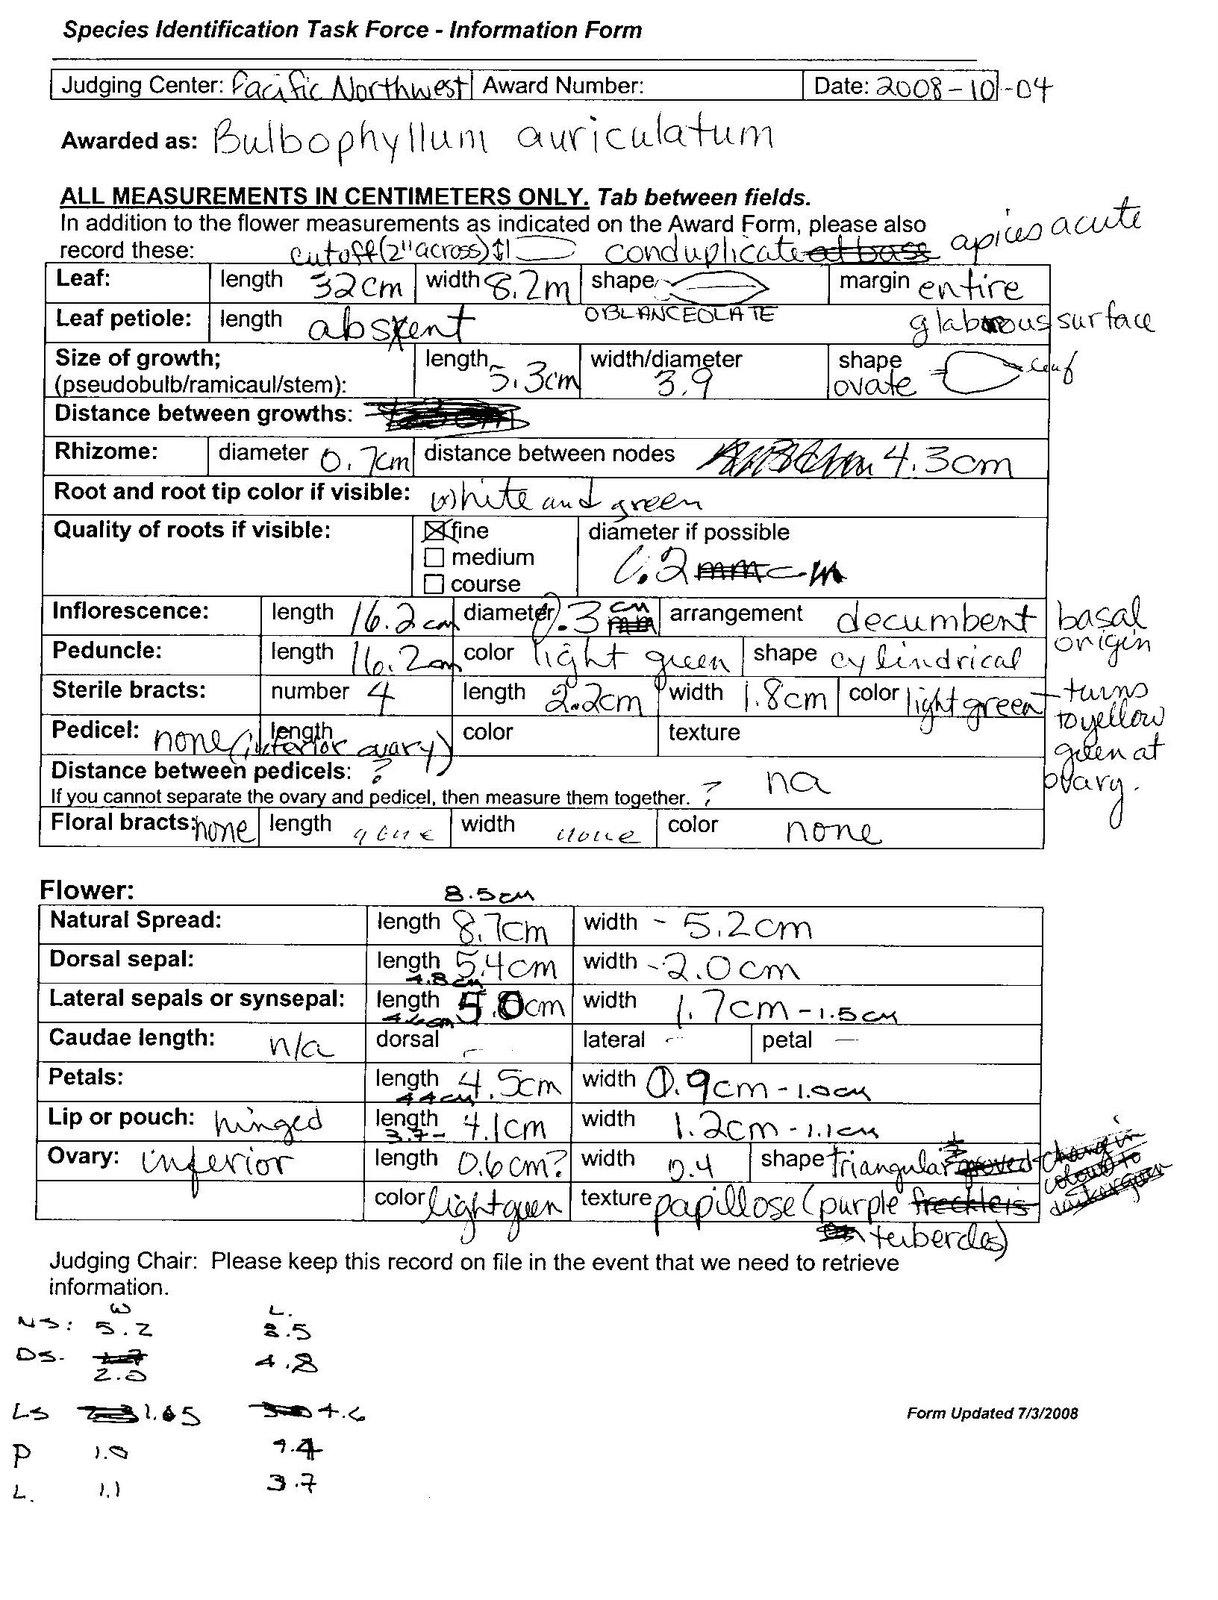 Species Identification Task Force - Information Form
Judging Center: Pacific Northwest Award Number: Date: 2008-10-04
Awarded as: Bulbophyllum auriculatum
ALL MEASUREMENTS IN CENTIMETERS ONLY. Tab between fields.
In addition to the flower measurements as indicated on the Award Form, please also
record these: cutoff (2" across) conduplicate at base apices acute
Leaf: length 32cm width 8.2m shape margin entire
OBLANCEOLATE
Leaf petiole: length absent glabrous surface
Size of growth; length 5.3cm width/diameter 3.9 shape ovate leaf
(pseudobulb/ramicaul/stem):
Distance between growths:
Rhizome: diameter 0.7cm distance between nodes 4.3cm
Root and root tip color if visible: white and green
Quality of roots if visible: fine diameter if possible
medium 0.2 mm cm
course
Inflorescence: length 16.2cm diameter 0.3 cm mm arrangement decumbent basal origin
Peduncle: length 16.2cm color light green shape cylindrical
Sterile bracts: number 4 length 2.2cm width 1.8cm color light green - turns to yellow green at ovary.
Pedicel: none (inferior ovary) length color texture
Distance between pedicels: ? na
If you cannot separate the ovary and pedicel, then measure them together. ?
Floral bracts: none length none width none color none
Flower: 8.5cm
Natural Spread: length 8.7cm width - 5.2cm
Dorsal sepal: length 5.4cm width - 2.0cm
4.8cm
Lateral sepals or synsepal: length 5.0cm width 1.7cm - 1.5cm
4.6cm
Caudae length: n/a dorsal - lateral - petal -
Petals: length 4.5cm width 0.9cm - 1.0cm
4.4cm
Lip or pouch: hinged length 4.1cm width 1.2cm - 1.1cm
3.7-
Ovary: inferior length 0.6cm? width 0.4 shape triangular grooved change in colour to darker green
color light green texture papillose (purple freckles
tubercles)
Judging Chair: Please keep this record on file in the event that we need to retrieve
information.
W L.
NS: 5.2 8.5
DS. 4.8
2.0
LS 1.65 4.6
P 1.0 4.4
L. 1.1 3.7
Form Updated 7/3/2008